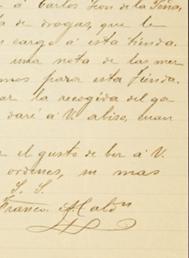 á Carlos Leon de la Peña,
de drogas, que le
cargo á esta tienda.
una nota de las mer
mos para esta tienda.
ar la recogida del ga
daré á V. abiso, cuan
el gusto de ber á V.
ordenes, su mas
S. S.
Franco. Mald